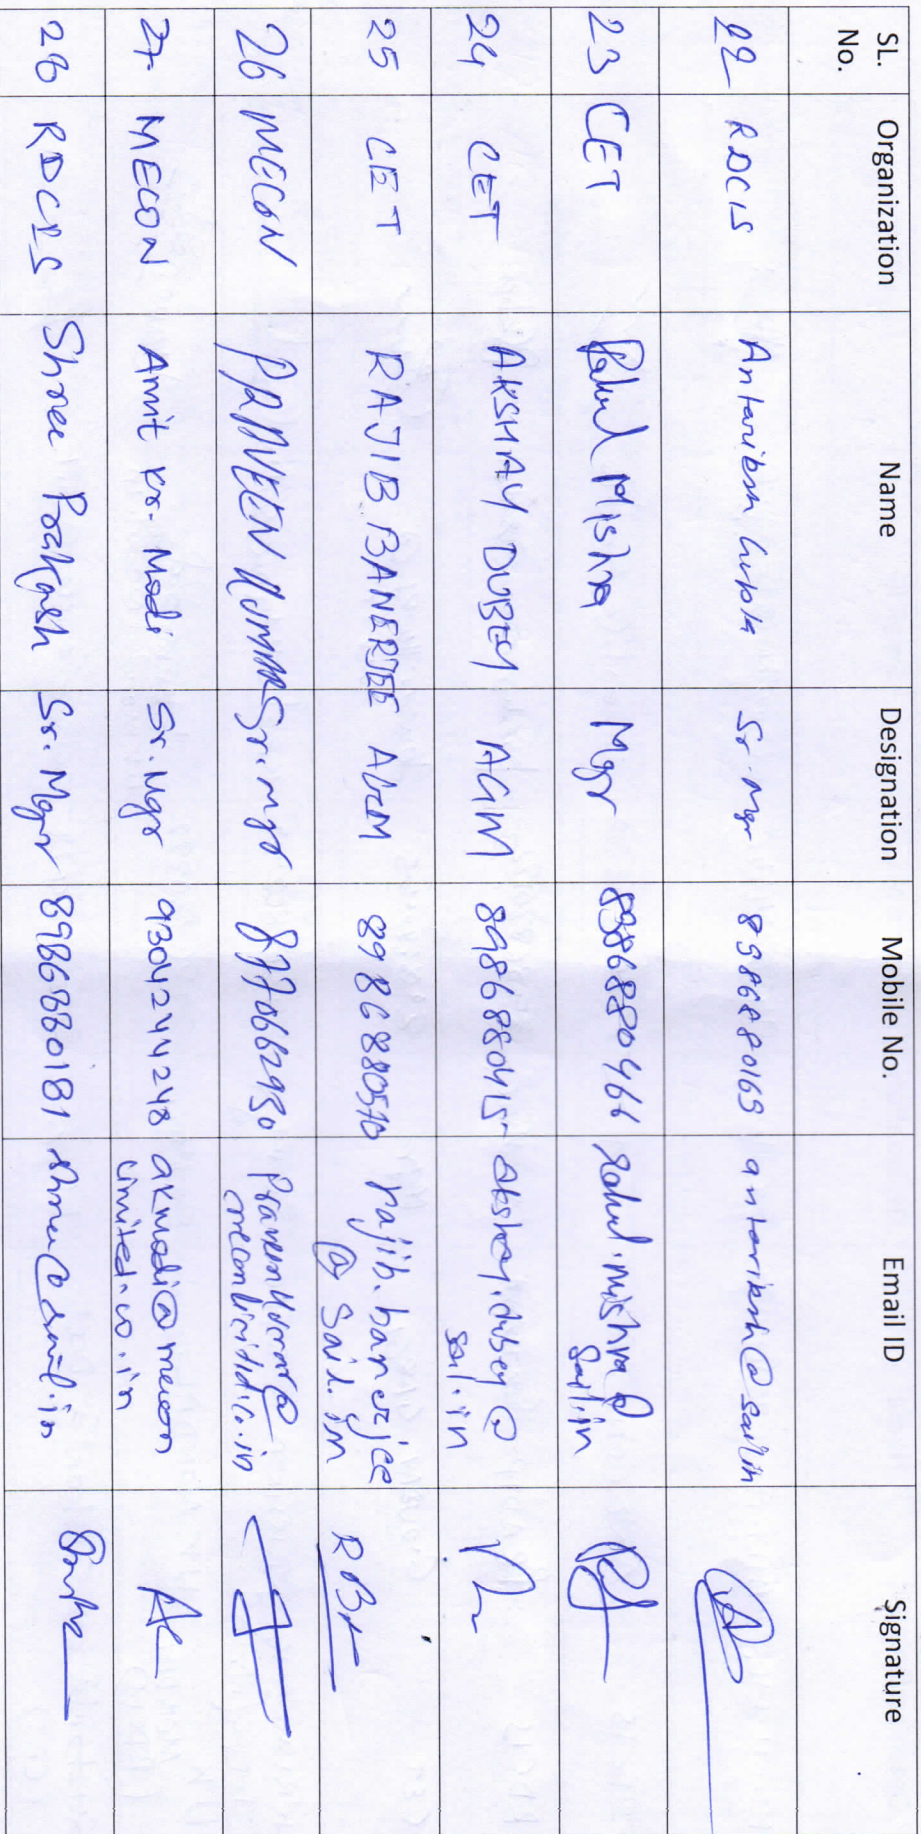 SL. No. Organization Name Designation Mobile No. Email ID Signature
22 RDCIS Antariksh Gupta Sr. Mgr 8986880169 antariksh@sail.in
23 CET Rahul Mishra Mgr 8986880466 rahul.mishra@
sail.in
24 CET AKSHAY DUBEY AGM 8986880415 akshay.dubey@
sail.in
25 CET RAJIB BANERJEE AGM 8986880570 rajib.banerjee
@sail.in RB
26 MECON PRAVEEN KUMAR Sr. mgr 8770662930 Praveenkumar@
27 MECON Amit Kr. Modi Sr. Mgr 9304244248 akmodi@mecon
limited.co.in
28 RDCIS Shree Prakash Sr. Mgr 8986880181 shree@sail.in